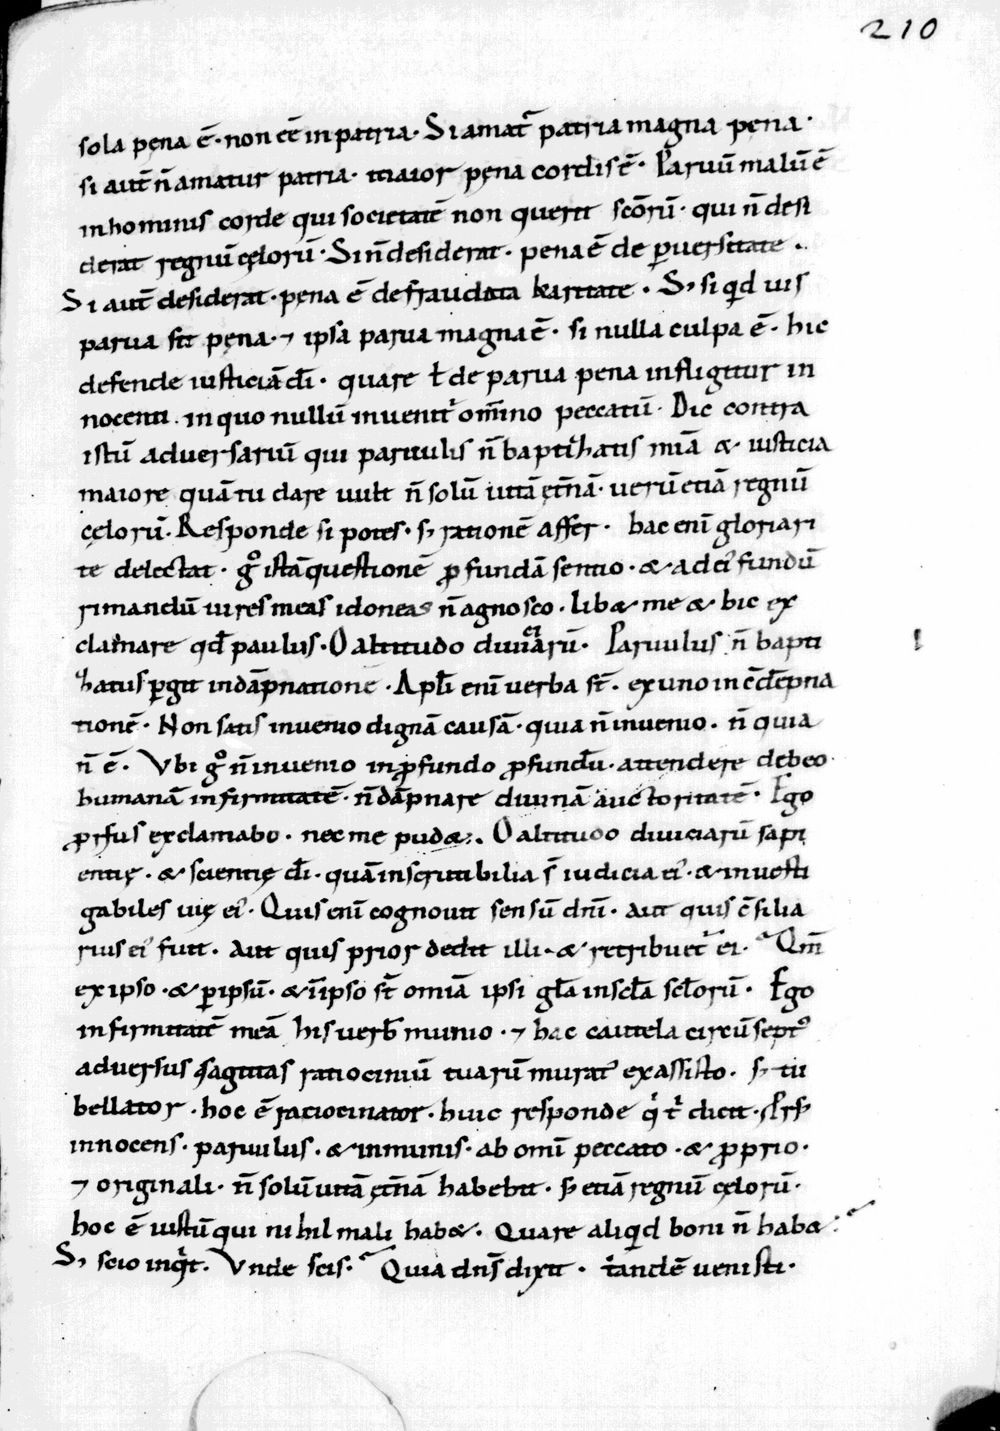 210
sola pęna ē· non eē in patria· Si amat᷑ patria magna pęna·
si aut̄ n̄ amatur patria· maior pęna cordis ē· Paruū malū ē
in hominis corde qui societatē non querit scōrū· qui n̄ desi
derat regnū cęlorū· Si n̄ desiderat· pena ē de ꝑuersitate·
Si aut̄ desiderat· pęna ē de fraudata karitate· S; si qd̄ uis
parua sit pęna· ⁊ ipsa parua magna ē· si nulla culpa ē· hic
defende iusticiā dī· quare ł de parua pena infligitur in
nocenti· in quo nullū inuenit᷑ om̄ino peccatū· Dic contra
istū aduersariū qui paruulis n̄ baptizatis miā & iusticia
maiore quā tu dare uult n̄ solū uitā ęt̄nā· uerū etiā regnū
cęlorū· Responde si potes· s; rationē affer· hac enī gloriari
te delectat· gͦ istā questionē ꝓfundā sentio· & ad eiꝰ fundū
rimandū uires meas idoneas n̄ agnosco· lib& me & hic ex
clamare qd̄ paulus· O altitudo diuitiarū· Paruulus n̄ bapti
zatus ꝑgit in dāpnatione· Apłi enī uerba sт̄· ex uno in ꝯdēpna
tionē· Non satis inuenio dignā causā· quia n̄ inuenio· n̄ quia
n̄ ē· Vbi gͦ n̄ inuenio in ꝓfundo ꝓfundū· attendere debeo
humanā infirmitatē· n̄ dāpnare diuinā auctoritatē· Ego
ꝓrsus exclamabo· nec me pud&· O altitudo diuiciarū sapi
entię· & scientię dī· quā inscrutibilia s̄ iudicia eiꝰ· & inuesti
gabiles uię eiꝰ· Quis enī cognouit sensū dnī· aut quis ꝯsilia
rius eiꝰ fuit· Aut quis prior dedit illi· & retribuet᷑ ei· Qm̄
ex ipso· & ꝑ ipsū· & in ipso st̄ omīa ipsi gła in scła scłorū· Ego
infirmitatē meā his uerƀ munio· ⁊ hac cautela circūseptꝰ
aduersus sagittas ratiociniū tuarū muratꝰ exassisto· s; tu
bellator· hoc ē raciocinator· huic responde qͥ tͥ dicit· Prsꝰ
innocens· paruulus· & inmunis· ab omī peccato· & ꝓprio·
⁊ originali· n̄ solū uitā ęt̄nā habebit· s; etiā regnū cęlorū·
hoc ē iustū qui nihil mali hab&· Quare aliqd̄ boni n̄ hab&·
S; scio inqͥt· Vnde scis· Quia dn̄s dixit· tandē uenisti·